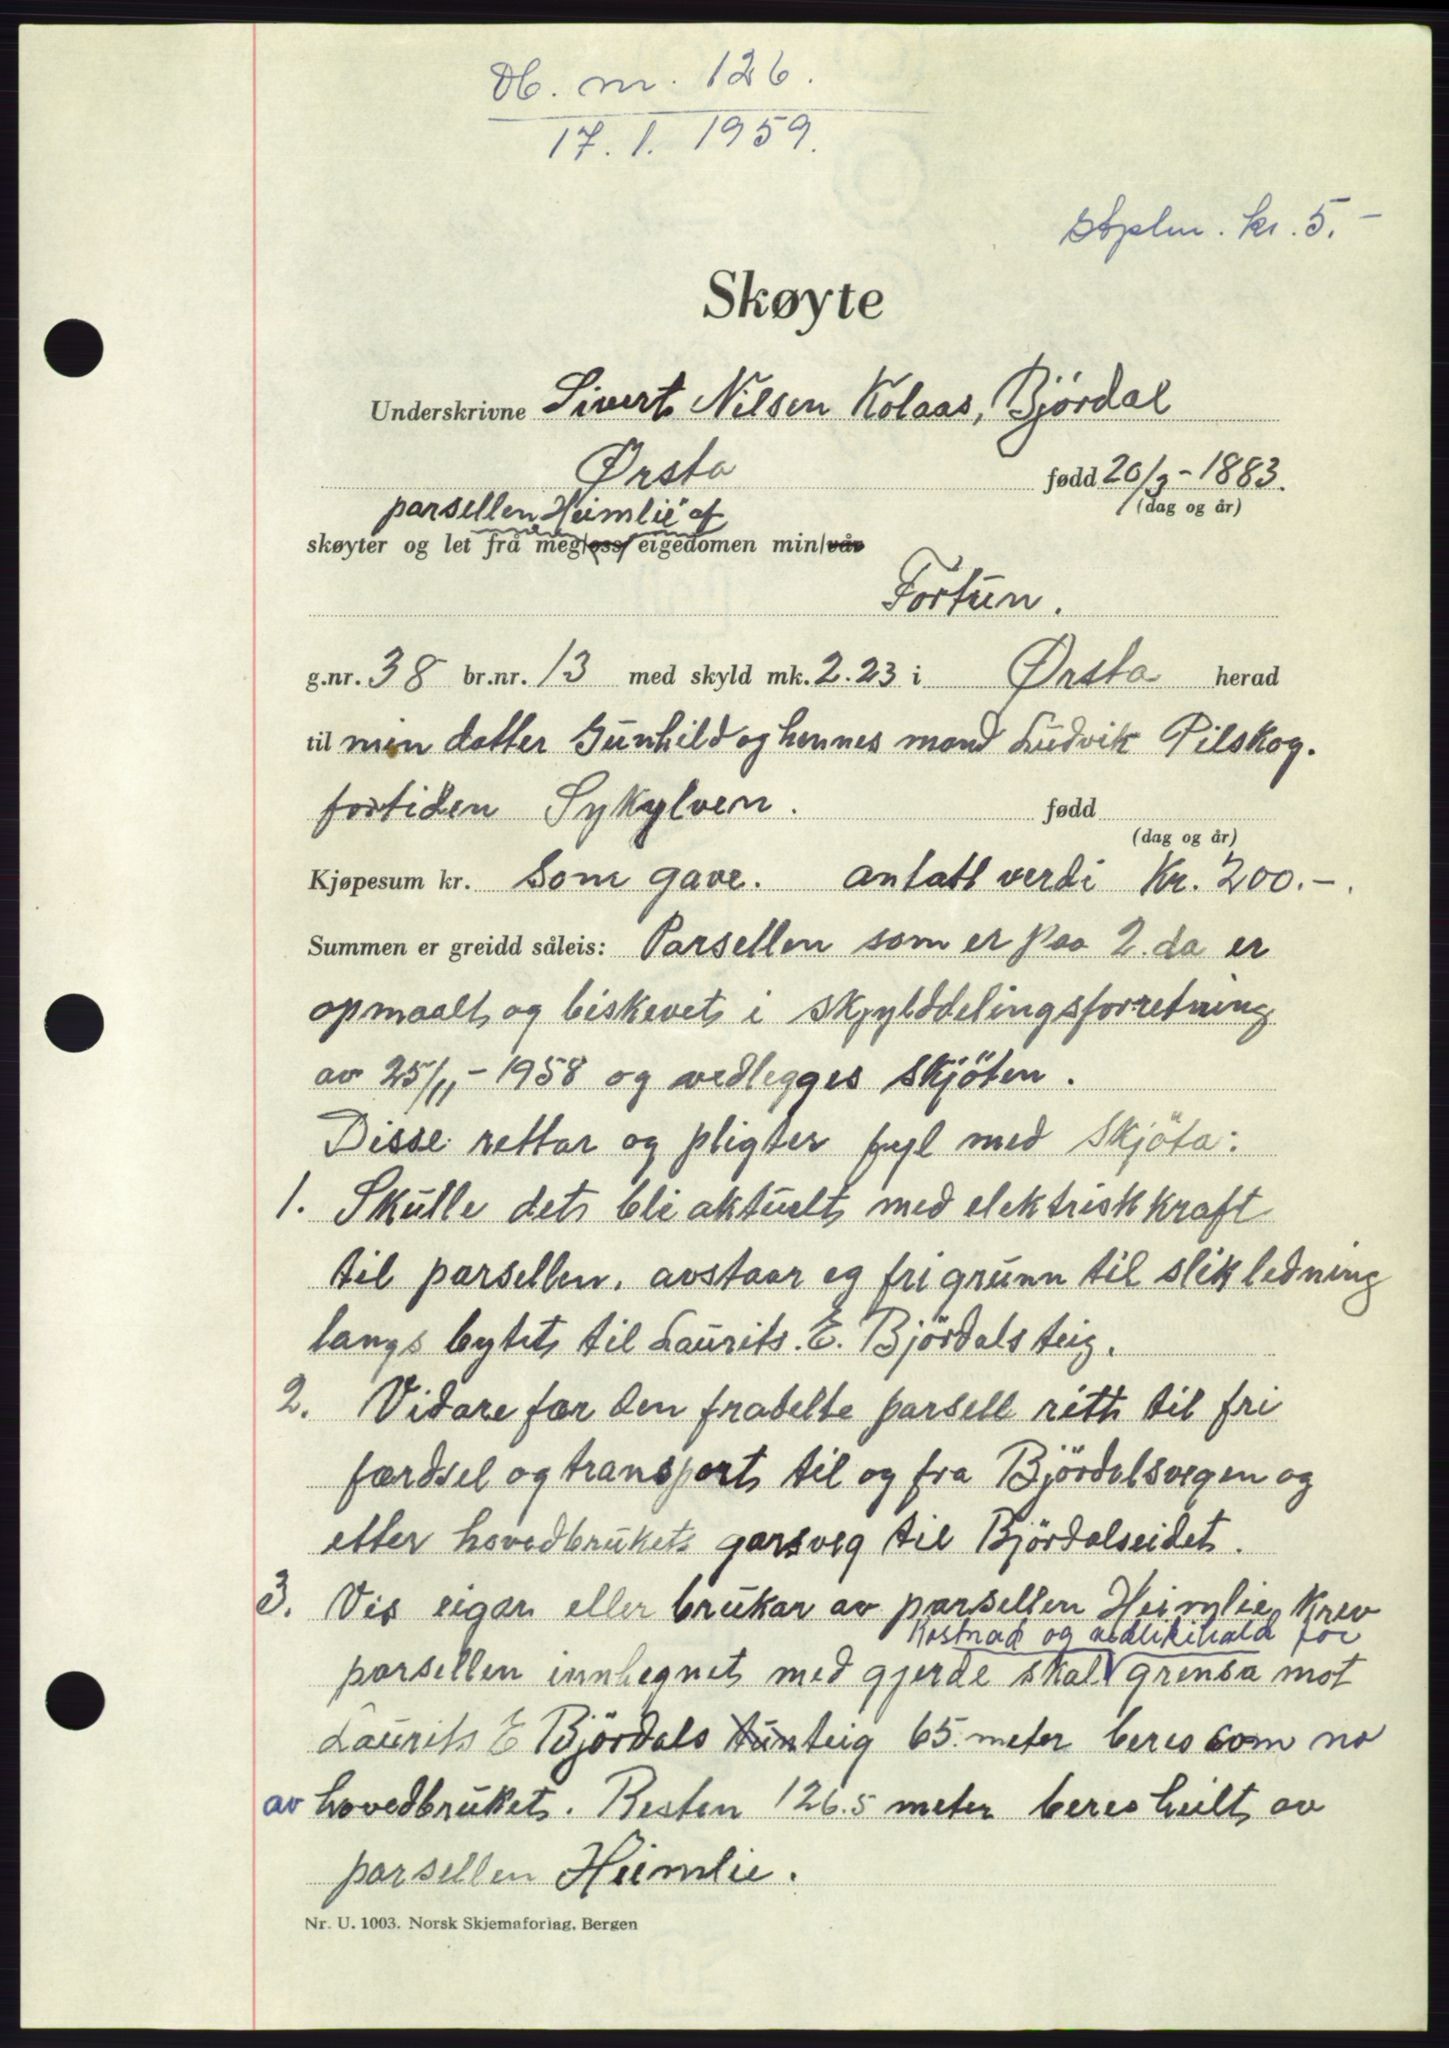 Db. nr. 126.
17. 1. 1959.
Stplm. kr. 5.-
Skøyte
Underskrivne Sivert Nilsen Kolaas, Björdal
Ørsta fødd 20/3 - 1883.
(dag og år)
parsellen "Heimlie" af
skøyter og let frå meg/oss/ eigedomen min/vår
Fortun.
g.nr. 38 br.nr. 13 med skyld mk. 2.23 i Ørsta herad
til min datter Gunhild og hennes mand Ludvik Pilskog.
fortiden Sykylven. fødd
(dag og år)
Kjøpesum kr. som gave. antatt verdi Kr. 200.-.
Summen er greidd såleis: Parsellen som er paa 2. da er
opmaalt og biskevet i skjylddelingsforretning
av 25/11 - 1958 og vedlegges skjöten.
Disse rettar og pligter fyl med skjöta:
1. Skulle det bli aktuelt med elektrisk kraft
til parsellen. avstaar eg fri grunn til slik ledning
langs bytet til Laurits. E. Björdals teig.
2. Vidare fær den fradelte parsell rett til fri
færdsel og transport til og fra Björdalsvegen og
etter hovedbruket garsveg til Björdalseidet.
3. Vis eigar eller brukar av parsellen Heimlie krev
Kostnad og vedlikihald for
parsellen innhegnet med gjerde skal grensa mot
Laurits E Björdals tunteig 65. meter beres som no
av hovedbruket. Resten 126.5 meter beres heilt av
parsellen Heimlie.
Nr. U. 1003. Norsk Skjemaforlag, Bergen